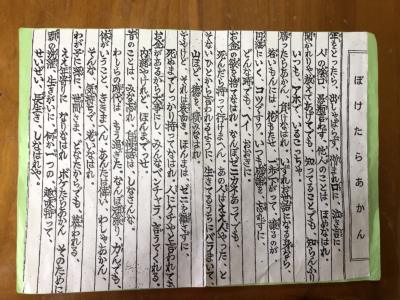 ぼけたらあかん
年をとったら出しゃばらず、憎まれ口に、泣き言に、
人のかげ口、愚痴いわず、他人のことは、ほめなはれ
聞かれりゃ教えてあげてても、知ってることでも、知らんふり
いつでも、アホでいるこっちゃ。
勝ったらあかん、負けなはれ、いずれお世話になる身なら、
若いもんには、花もたせ、一歩さがって、譲るのが
円満にいく、コツですワ。いつも感謝を、忘れずに、
どんな時でも、へイ、おおきに。
お金の欲を、捨てなはれ、なんぼゼニカネあってでも、
死んだら持って行けまへん。あの人はええ人やった、と
そないひとから、言われるように、生きてるうちに、バラまいて、
山ほど徳を、積みなはれ。
そやけど、それは表向き、ほんまは、ゼニを離さずに、
死ぬまでしっかり持ってなはれ、人にケチやと云われても、
お金があるから大事にし、みんなベンチャラ、言うてくれる。
内緒やけれど、ほんまでっせ。
昔のことは、みな忘れ、自慢話は、しなはんな、
わしらの時代は、もう過ぎた、なんぼ頑張り、力んでも、
体がいうこと、ききまへん、あんたは偉い、わしゃあかん、
そんな気持で、おりなはれ。
わが子に孫に、世間さま、どなたからでも、慕われる、
ええ年寄りに、なりなはれ ボケたらあかん そのために
頭の洗濯、生きがいに、何か一つの、趣味持って、
せいぜい、長生き、しなはれや。